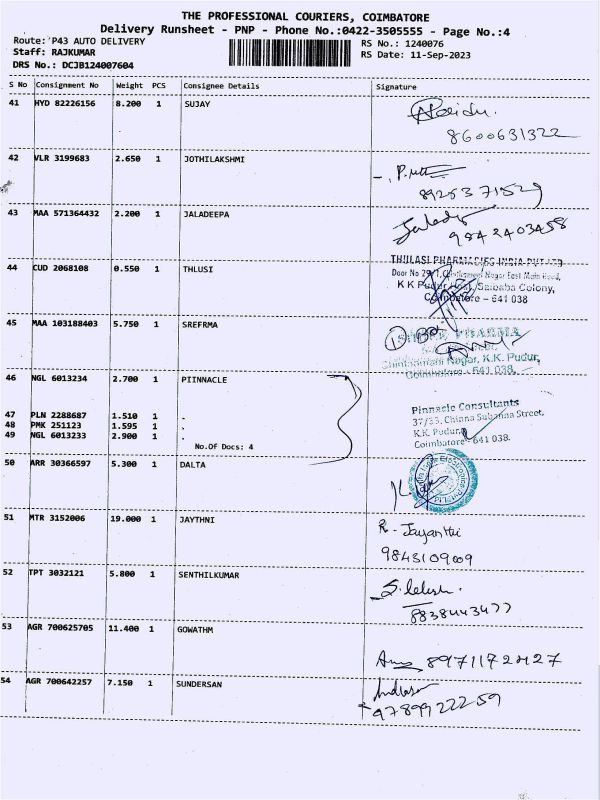 THE PROFESSIONAL COURIERS, COIMBATORE
Delivery Runsheet - PNP - Phone No.:0422-3505555 - Page No.:4
Route: P43 AUTO DELIVERY
RS No.: 1240076
Staff: RAJKUMAR
RS Date: 11-Sep-2023
DRS No.: DCJB124007604
S No Consignment No Weight PCS Consignee Details Signature
41 HYD 82226156 8.200 1 SUJAY
8600631322
42 VLR 3199683 2.650 1 JOTHILAKSHMI
43 MAA 571364432 2.200 1 JALADEEPA
9842403458
44 CUD 2068108 0.550 1 THLUSI
THULASI PHARMACIES INDIA PVT LTD
Door No 29/1, Nagar East Main Road,
K K Pudur Saibaba Colony,
Coimbatore - 641 038
45 MAA 103188403 5.750 1 SREFRMA
PHARMA
Nagar, K.K. Pudur,
Coimbatore - 641 038.
46 NGL 6013234 2.700 1 PIINNACLE
Pinnacle Consultants
37/33, Chinna Subanna Street,
K.K. Pudur,
Coimbatore - 641 038.
47 PLN 2288687 1.510 1 .
48 PMK 251123 1.595 1 .
49 NGL 6013233 2.900 1 .
No.Of Docs: 4
50 ARR 30366597 5.300 1 DALTA
51 MTR 3152006 19.000 1 JAYTHNI
R. Jayanthi
9843109009
52 TPT 3032121 5.800 1 SENTHILKUMAR
8838443477
53 AGR 700625705 11.400 1 GOWATHM
54 AGR 700642257 7.150 1 SUNDERSAN
9789922259